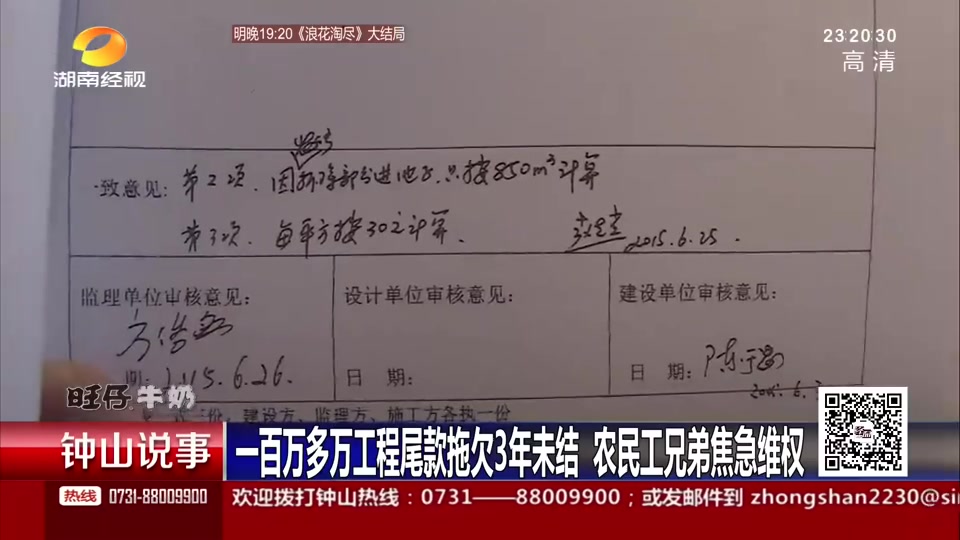 明晚19:20《浪花淘尽》大结局
23:20:30
高清
湖南经视
一致意见: 第2项、因拆除部分进池子,只按850m³计算
第3项、每平方按30元计算、
2015.6.25.
监理单位审核意见:
设计单位审核意见:
建设单位审核意见:
期: 2015.6.26.
日 期:
日 期:
旺仔牛奶
份,建设方、监理方、施工方各执一份
钟山说事
一百万多万工程尾款拖欠3年未结 农民工兄弟焦急维权
热线 0731-88009900
欢迎拨打钟山热线:0731——88009900;或发邮件到 zhongshan2230@sin